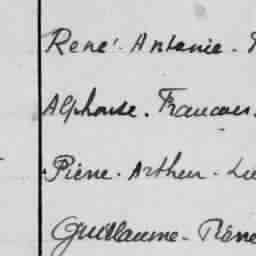 René. Antonie.
Alphonse. Francois.
Pierre. Arthur. Lu
Guillaume. Réne